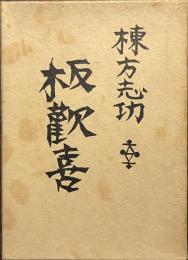 棟方志功
板歓喜